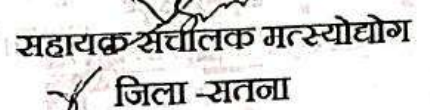 सहायक संचालक मत्स्योद्योग
जिला -सतना